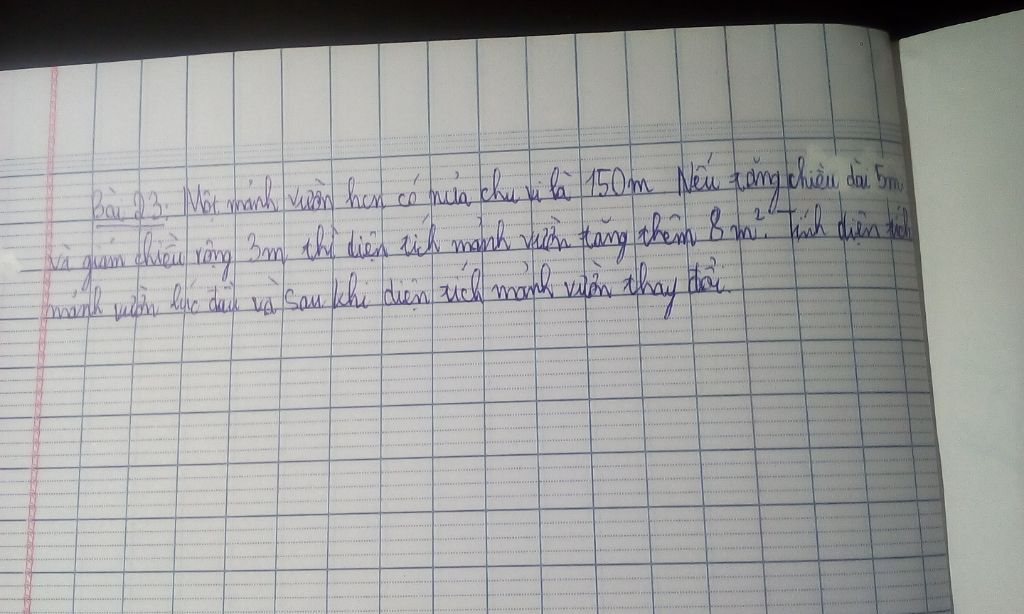 Bài 23: Một mảnh vườn hcn có nửa chu vi là 150m Nếu tăng chiều dài 5m
và giảm chiều rộng 3m thì diện tích mảnh vườn tăng thêm 8m². Tính diện tích
mảnh vườn lúc đầu và sau khi diện tích mảnh vườn thay đổi.